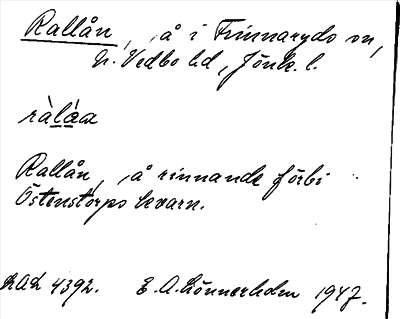 Rallån, å i Frinnaryds sn,
N. Vedbo hd, Jönk. l.
Rallån, å rinnande förbi
Östenstorps kvarn.
4392. E. A. Lönnerholm 1947.